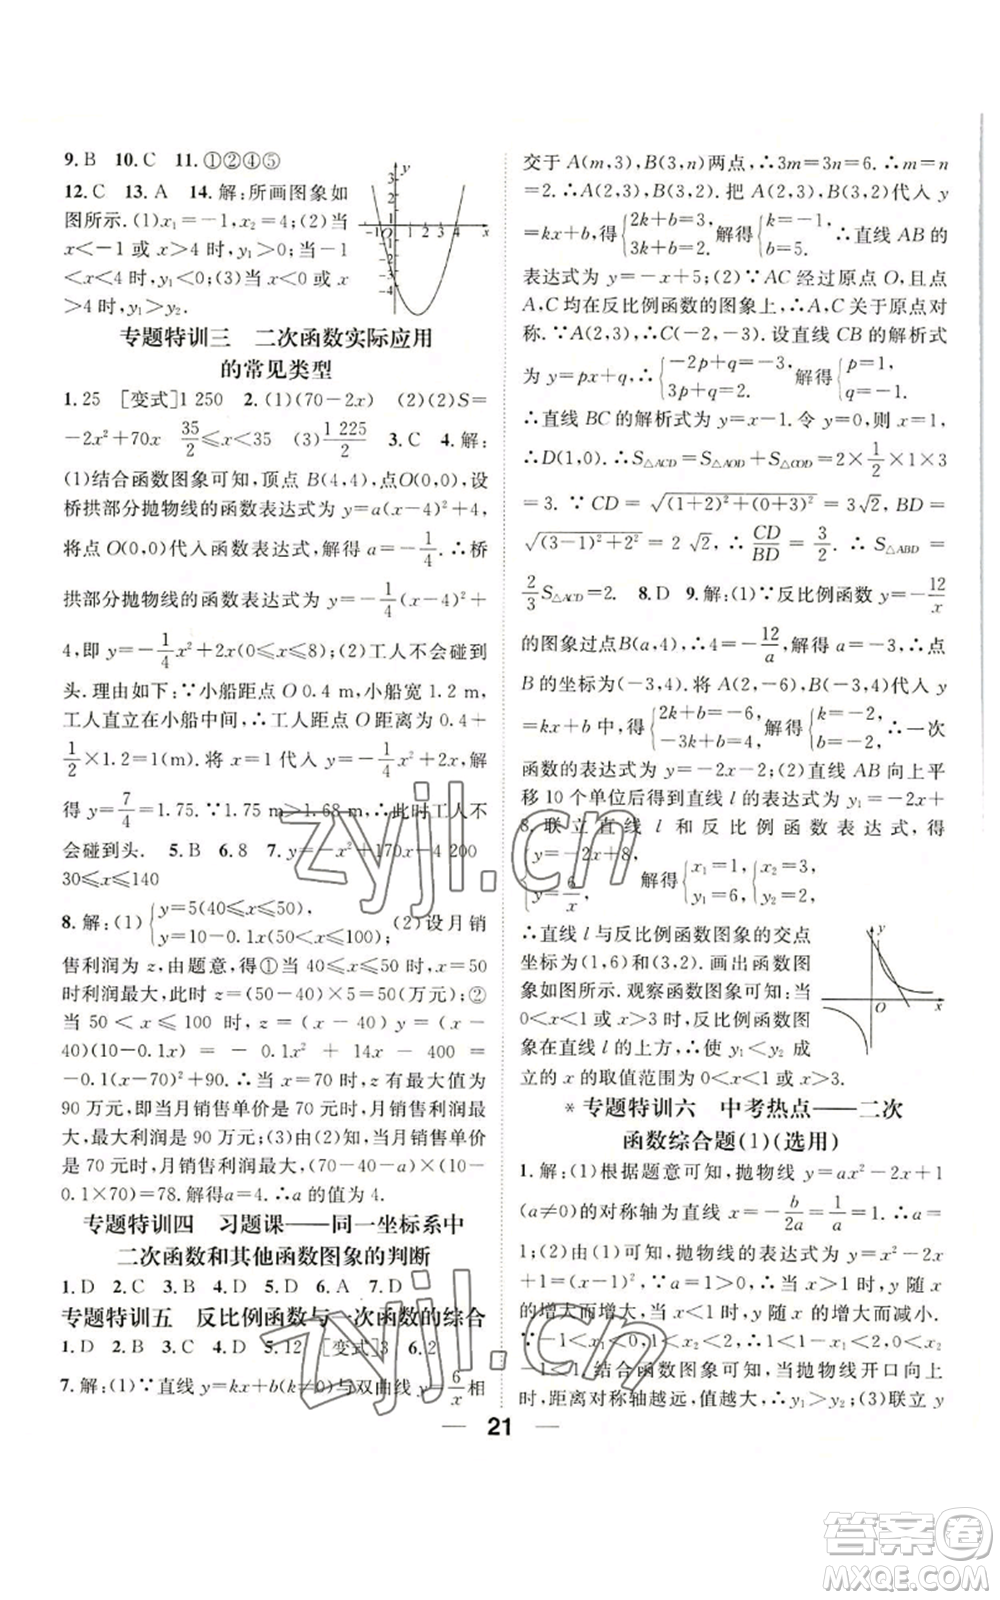 9. B 10. C 11. ①②④⑤
12. C 13. A 14. 解:所画图象如
图所示.(1)x₁=-1,x₂=4;(2)当
x<-1 或 x>4 时,y₁>0;当-1
<x<4 时,y₁<0;(3)当 x<0 或 x
>4 时,y₁>y₂.
专题特训三 二次函数实际应用
的常见类型
1. 25 [变式]1 250 2. (1)(70-2x) (2)(2)S=
-2x²+70x 35/2≤x<35 (3)1 225/2 3. C 4. 解:
(1)结合函数图象可知,顶点 B(4,4),点O(0,0),设
桥拱部分抛物线的函数表达式为 y=a(x-4)²+4,
将点 O(0,0)代入函数表达式,解得 a=-1/4.∴桥
拱部分抛物线的函数表达式为 y=-1/4(x-4)²+
4,即 y=-1/4x²+2x(0≤x≤8);(2)工人不会碰到
头.理由如下:∵小船距点 O 0.4 m,小船宽 1.2 m,
工人直立在小船中间,∴工人距点 O 距离为 0.4+
1/2×1.2=1(m).将 x=1 代入 y=-1/4x²+2x,解
得 y=7/4=1.75.∵1.75 m>1.68 m,∴此时工人不
会碰到头. 5. B 6. 8 7. y=-x²+170x-4 200
30≤x≤140
8. 解:(1){y=5(40≤x≤50), y=10-0.1x(50<x≤100). (2)设月销
售利润为 z,由题意,得①当 40≤x≤50 时,x=50
时利润最大,此时 z=(50-40)×5=50(万元);②
当 50<x≤100 时,z=(x-40)y=(x-
40)(10-0.1x)=-0.1x²+14x-400=
-0.1(x-70)²+90.∴当 x=70 时,z 有最大值为
90 万元,即当月销售单价是 70 元时,月销售利润最
大,最大利润是 90 万元;(3)由(2)知,当月销售单
价是 70 元时,月销售利润最大,即(70-40-a)(10-
0.1×70)=78.解得a=4.∴a 的值为 4.
专题特训四 习题课——同一坐标系中
二次函数和其他函数图象的判断
1. D 2. C 3. B 4. D 5. D 6. A 7. D
专题特训五 反比例函数与一次函数的综合
1. D 2. B 3. C 4. D 5. 12 [变式]3 6. 2
7. 解:(1)∵直线 y=kx+b(k≠0)与双曲线 y=6/x相
交于 A(m,3),B(3,n)两点,∴3m=3n=6.∴m=n
=2.∴A(2,3),B(3,2).把 A(2,3),B(3,2)代入 y
=kx+b,得{2k+b=3, 3k+b=2. 解得{k=-1, b=5. ∴直线 AB 的
表达式为 y=-x+5;(2)∵AC 经过原点 O,且点
A,C 均在反比例函数的图象上,∴A,C 关于原点对
称.∵A(2,3),∴C(-2,-3).设直线 CB 的解析式
为 y=px+q,∴{-2p+q=-3, 3p+q=2. 解得{p=1, q=-1.
∴直线 BC 的解析式为 y=x-1.令 y=0,则 x=1.
∴D(1,0).∴S△ACD=S△AOD+S△COD=2×1/2×1×3
=3.∵CD=√(1+2)²+(0+3)²=3√2,BD=
√(3-1)²+2²=2√2,∴CD/BD=3/2.∴S△ABD=
2/3S△ACD=2. 8. D 9. 解:(1)∵反比例函数 y=-12/x
的图象过点B(a,4),∴4=-12/a,解得 a=-3,∴点
B 的坐标为(-3,4).将 A(2,-6),B(-3,4)代入
y=kx+b 中,得{2k+b=-6, -3k+b=4. 解得{k=-2, b=-2. ∴一次
函数的表达式为 y=-2x-2;(2)直线 AB 向上平
移 10 个单位后得到直线 l 的表达式为 y₁=-2x+
8. 联立直线 l 和反比例函数表达式,得
{y=-2x+8, y=6/x, 解得{x₁=1, y₁=6, {x₂=3, y₂=2,
∴直线 l 与反比例函数图象的交点
坐标为(1,6)和(3,2).画出函数图
象如图所示.观察函数图象可知:当
0<x<1 或 x>3 时,反比例函数图
象在直线 l 的上方,∴使 y₁<y₂成
立的 x 的取值范围为 0<x<1 或 x>3.
*专题特训六 中考热点——二次
函数综合题(1)(选用)
1. 解:(1)根据题意可知,抛物线 y=ax²-2x+1
(a≠0)的对称轴为直线 x=-b/2a=1/a=1,∴a=
1;(2)由(1)可知,抛物线的表达式为 y=x²-2x+
1=(x-1)².∵a=1>0,∴当 x>1 时,y 随 x 的增
大而增大,当 x<1 时,y 随 x 的增大而减小.
∵-1<x₁<0,1<x₂<2,∴1<1-x₁<2,0<x₂
-1<1.结合函数图象可知,当抛物线开口向上时,
距离对称轴越远,值越大,∴y₁>y₂;(3)联立 y
21
zyjl.cn
zyjl.cn
答案卷
MXQE.COM